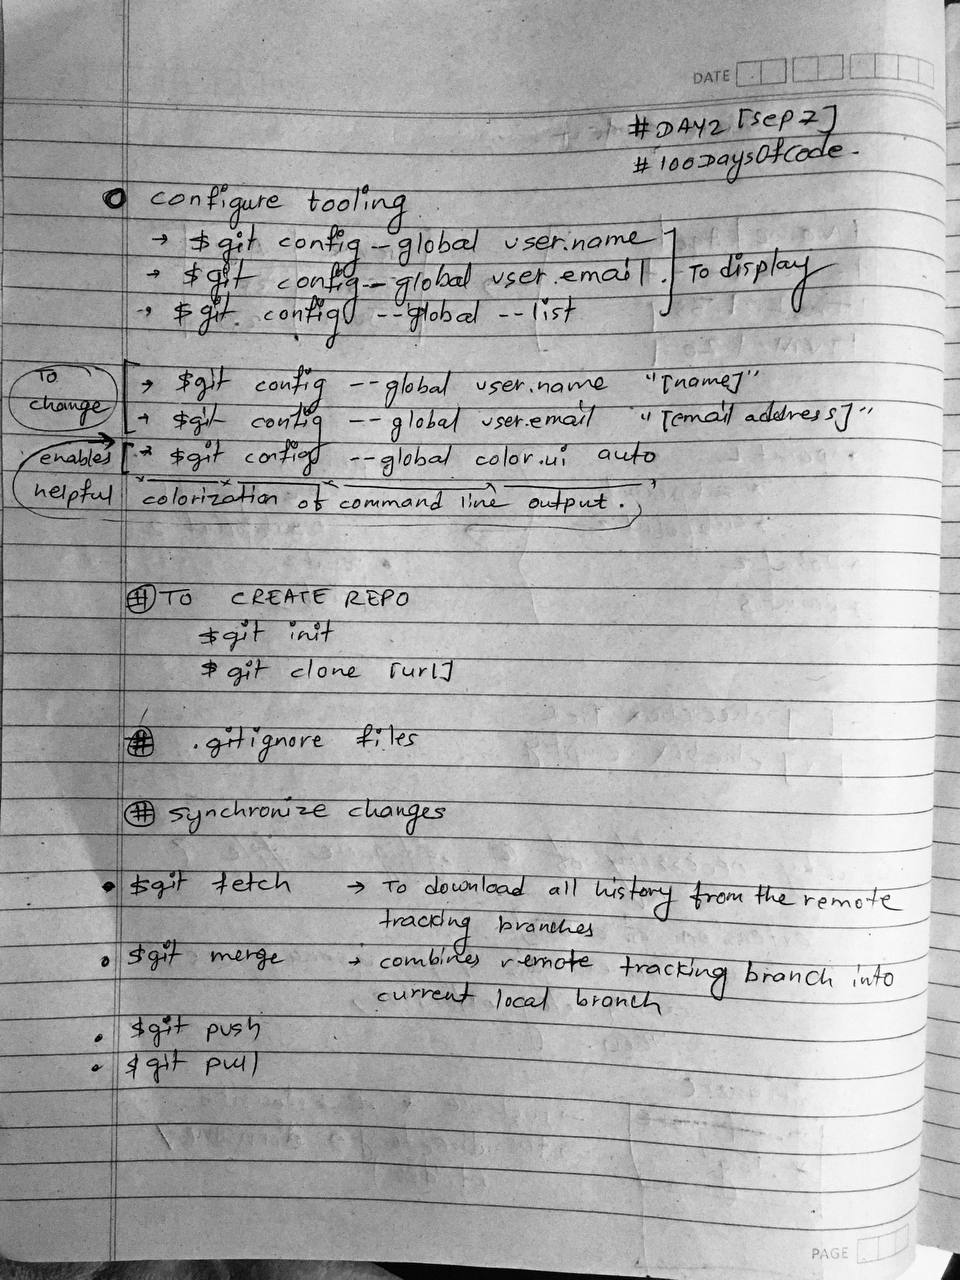 DATE
#DAY2 [Sep 7]
#100DaysOfCode.
configure tooling
→ $git config -- global user.name
→ $git config -- global user.email.
To display
→ $git config --global --list
To change
→ $git config --global user.name "[name]"
→ $git config --global user.email "[email address]"
→ $git config --global color.ui auto
enables helpful colorization of command line output.
# TO CREATE REPO
$git init
$ git clone [url]
# .gitignore files
# synchronize changes
• $git fetch → To download all history from the remote
tracking branches
• $git merge → combines remote tracking branch into
current local branch
• $git push
• $git pull
PAGE